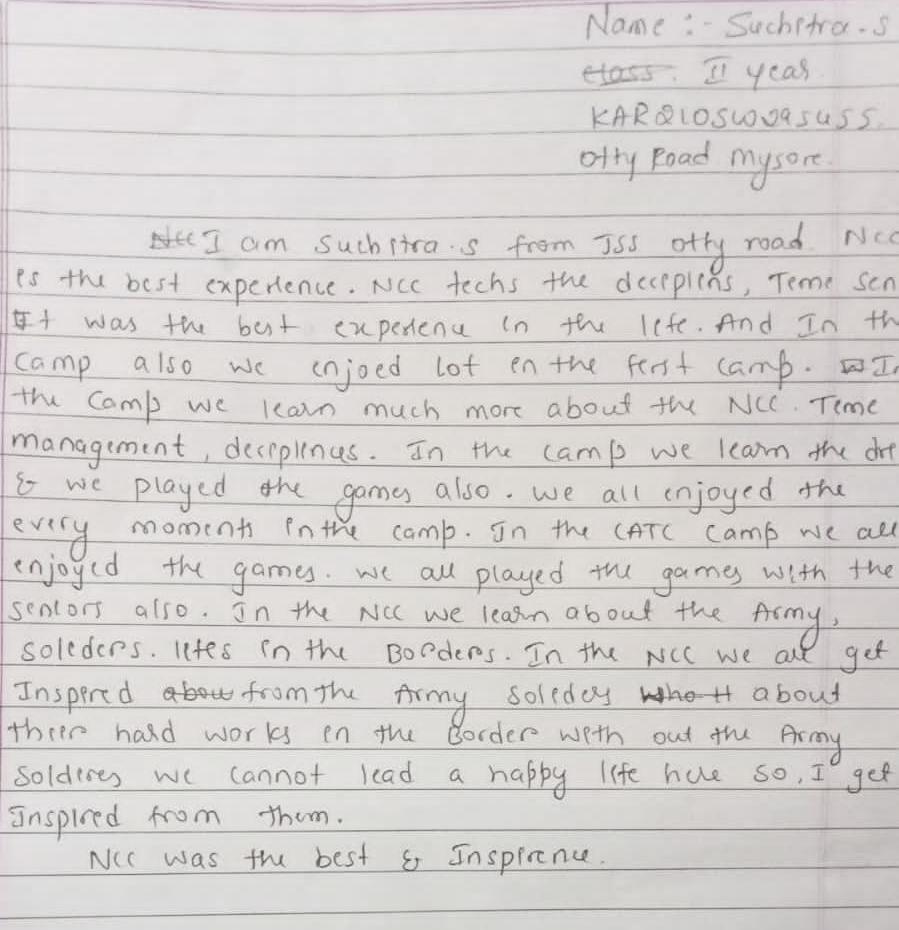 Name :- Suchitra.S
class. II year
KAR21OSW09SUSS.
Otty Road Mysore.
Ncc I am Suchitra.s from JSS otty road Ncc
is the best experience. NCC techs the deceplens, Teme Sen
It was the best experience in the life. And In th
camp also we enjoed lot en the ferst camp. In
the Camp we learn much more about the NCC. Teme
management, deceplenes. In the camp we learn the dre
& we played the games also. we all enjoyed the
every moments in the camp. In the CATC Camp we all
enjoyed the games. we all played the games with the
seniors also. In the NCC we learn about the Army,
soleders. lifes in the Borders. In the NCC we all get
Inspired abou from the Army soleders who H about
their hard works en the Border with out the Army
solderes we cannot lead a happy life here so, I get
Inspired from them.
NCC was the best & Inspirence.